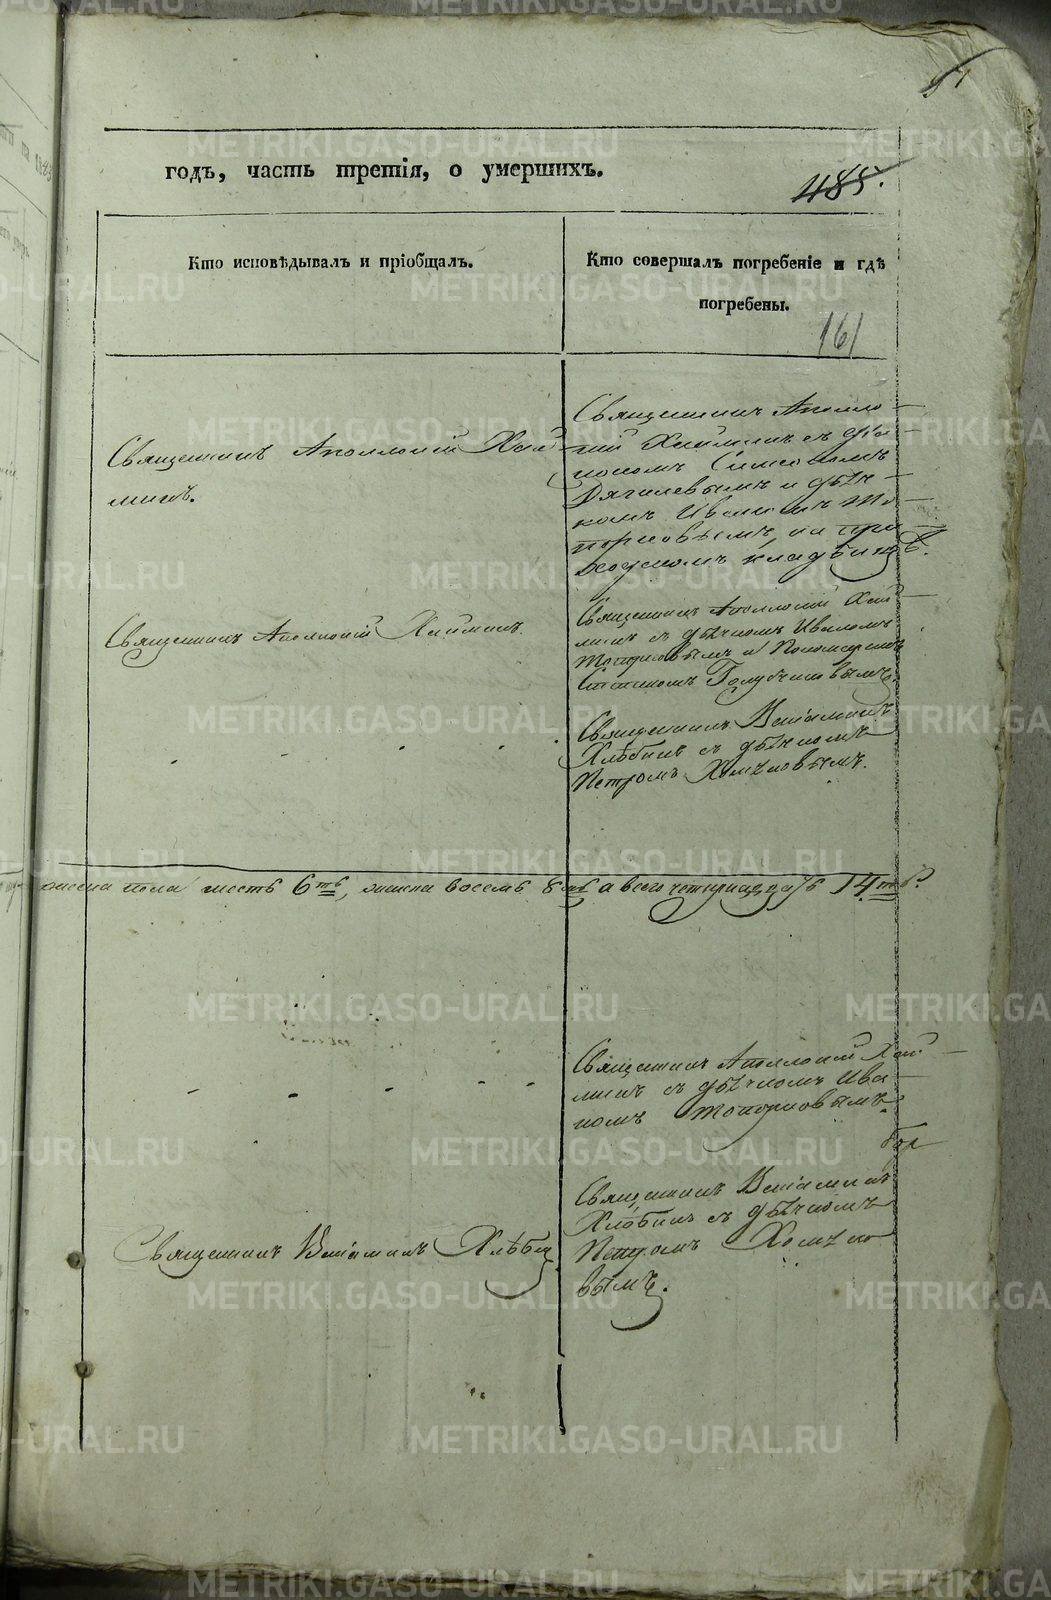 годъ, часть третія, о умершихъ.
485.
Кто исповѣдывалъ и пріобщалъ.
Кто совершалъ погребеніе и гдѣ
погребены.
161
Священникъ Аполлоній Хай
минъ.
Священникъ Аполло-
ній Хайминъ съ діа-
кономъ Симеономъ
и дьяч-
комъ Иваномъ То-
порковымъ, на при
ходскомъ кладбищѣ.
Священникъ Аполлоній Хайминъ.
Священникъ Аполлоній Хай
минъ съ дьячкомъ Иваномъ
Топорковымъ и Пономаремъ
Голубчиковымъ.
Священникъ Веніаминъ
Хлѣбинъ съ дьячкомъ
Петромъ Хомяковымъ.
пола шесть 6ть, восемь 8мь а всего четырнадцать 14ть.
Священникъ Аполлоній Хай
минъ съ дьячкомъ Ива
номъ Топорковымъ.
Священникъ Веніаминъ Хлѣбин
Священникъ Веніаминъ
Хлѣбинъ съ дьячкомъ
Петромъ Хомяко
вымъ.
METRIKI.GASO-URAL.RU